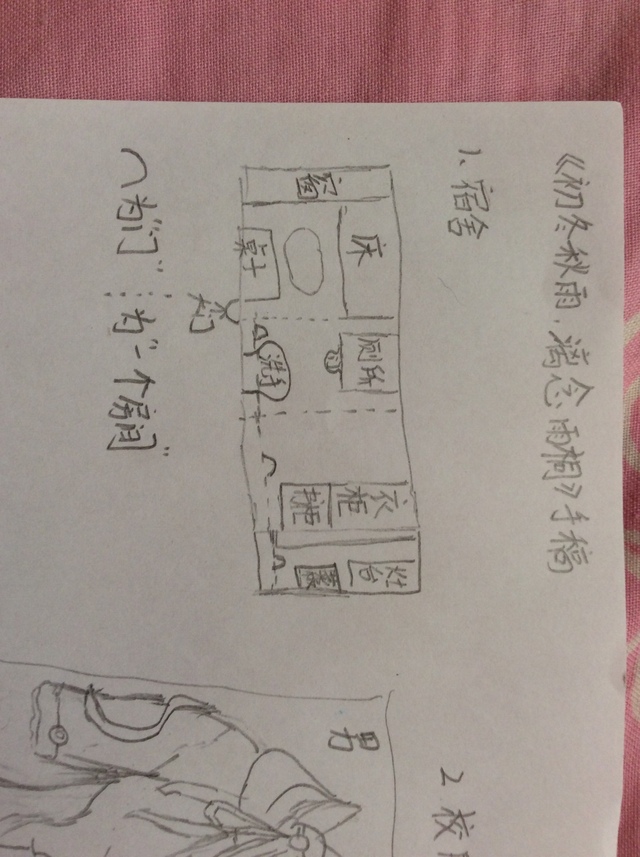 《初冬秋雨,漓念雨桐》手稿
1、宿舍
窗
床
桌子
大门
厕所
洗手
衣柜
灶台
⌒为“门”
┄为“一个房间”
男
2、校